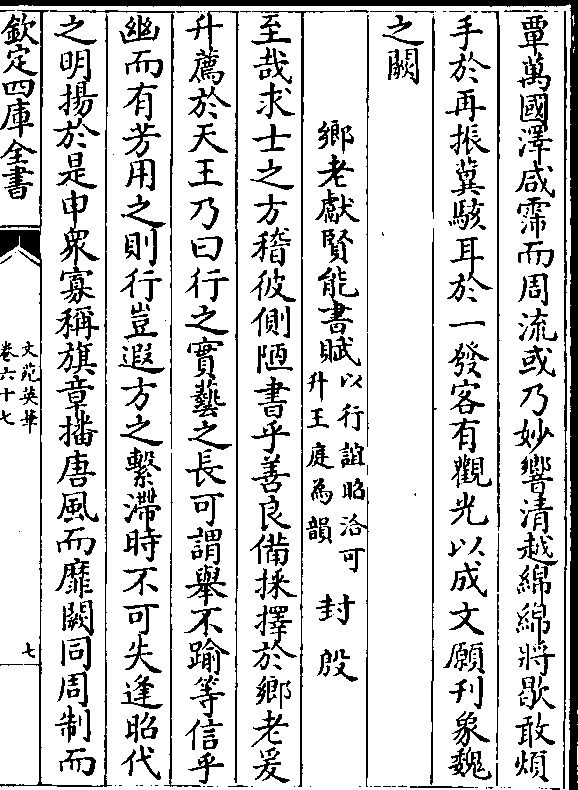 覃萬國澤咸霈而周流或乃妙響清越綿綿將歇敢煩
手於再振冀駭耳於一發客有觀光以成文願刊象魏
之闕
鄉老獻賢能書賦以行誼昭洽可升王庭為韻 封殷
至哉求士之方稽彼側陋書乎善良備採擇於鄉老爰
升薦於天王乃曰行之實藝之長可謂舉不踰等信乎
幽而有芳用之則行豈遐方之繫滯時不可失逢昭代
之明揚於是申衆寡稱旗章播唐風而靡闕同周制而
欽定四庫全書
文苑英華
卷六十七
七